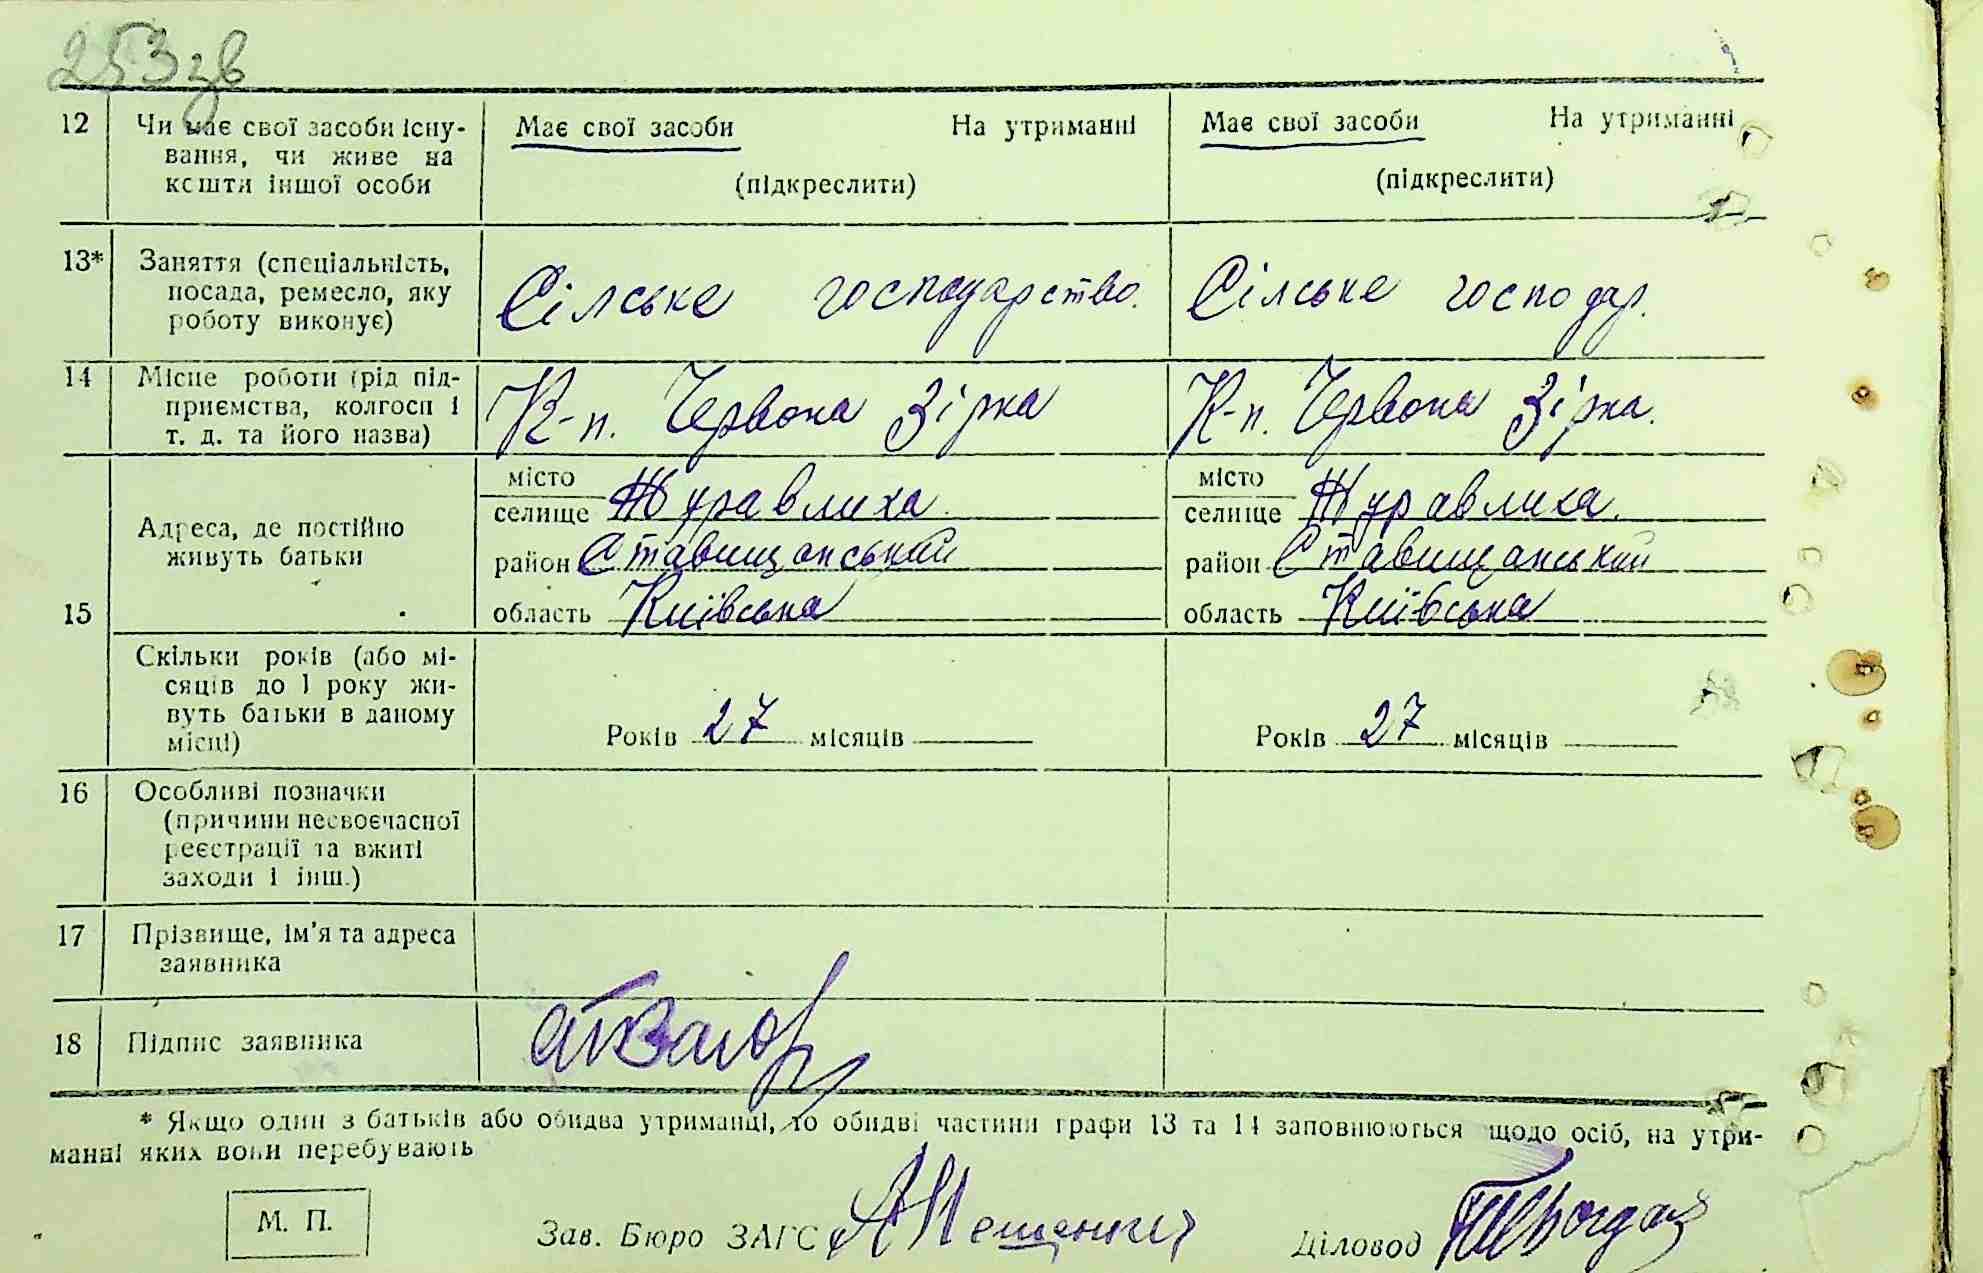 253 зв
12 Чи має свої засоби існу- Має свої засоби На утриманні Має свої засоби На утриманні
вання, чи живе на
кошти іншої особи (підкреслити) (підкреслити)
13* Заняття (спеціальність, Сілське господарство. Сілське господар.
посада, ремесло, яку
роботу виконує)
14 Місце роботи (рід під- К-п. Червона Зірка К-п. Червона Зірка.
приємства, колгосп і
т. д. та його назва)
15 Адреса, де постійно живуть батьки
місто
селище Журавлиха
район Ставищанський
область Київська
місто
селище Журавлиха
район Ставищанський
область Київська
Скільки років (або мі-
сяців до 1 року жи-
вуть батьки в даному
місці)
Років 27 місяців Років 27 місяців
16 Особливі позначки
(причини несвоєчасної
реєстрації та вжиті
заходи і інш.)
17 Прізвище, ім'я та адреса
заявника
18 Підпис заявника
* Якщо один з батьків або обидва утриманці, то обидві частини графи 13 та 14 заповнюються щодо осіб, на утри-
манні яких вони перебувають
М. П. Зав. Бюро ЗАГС Діловод